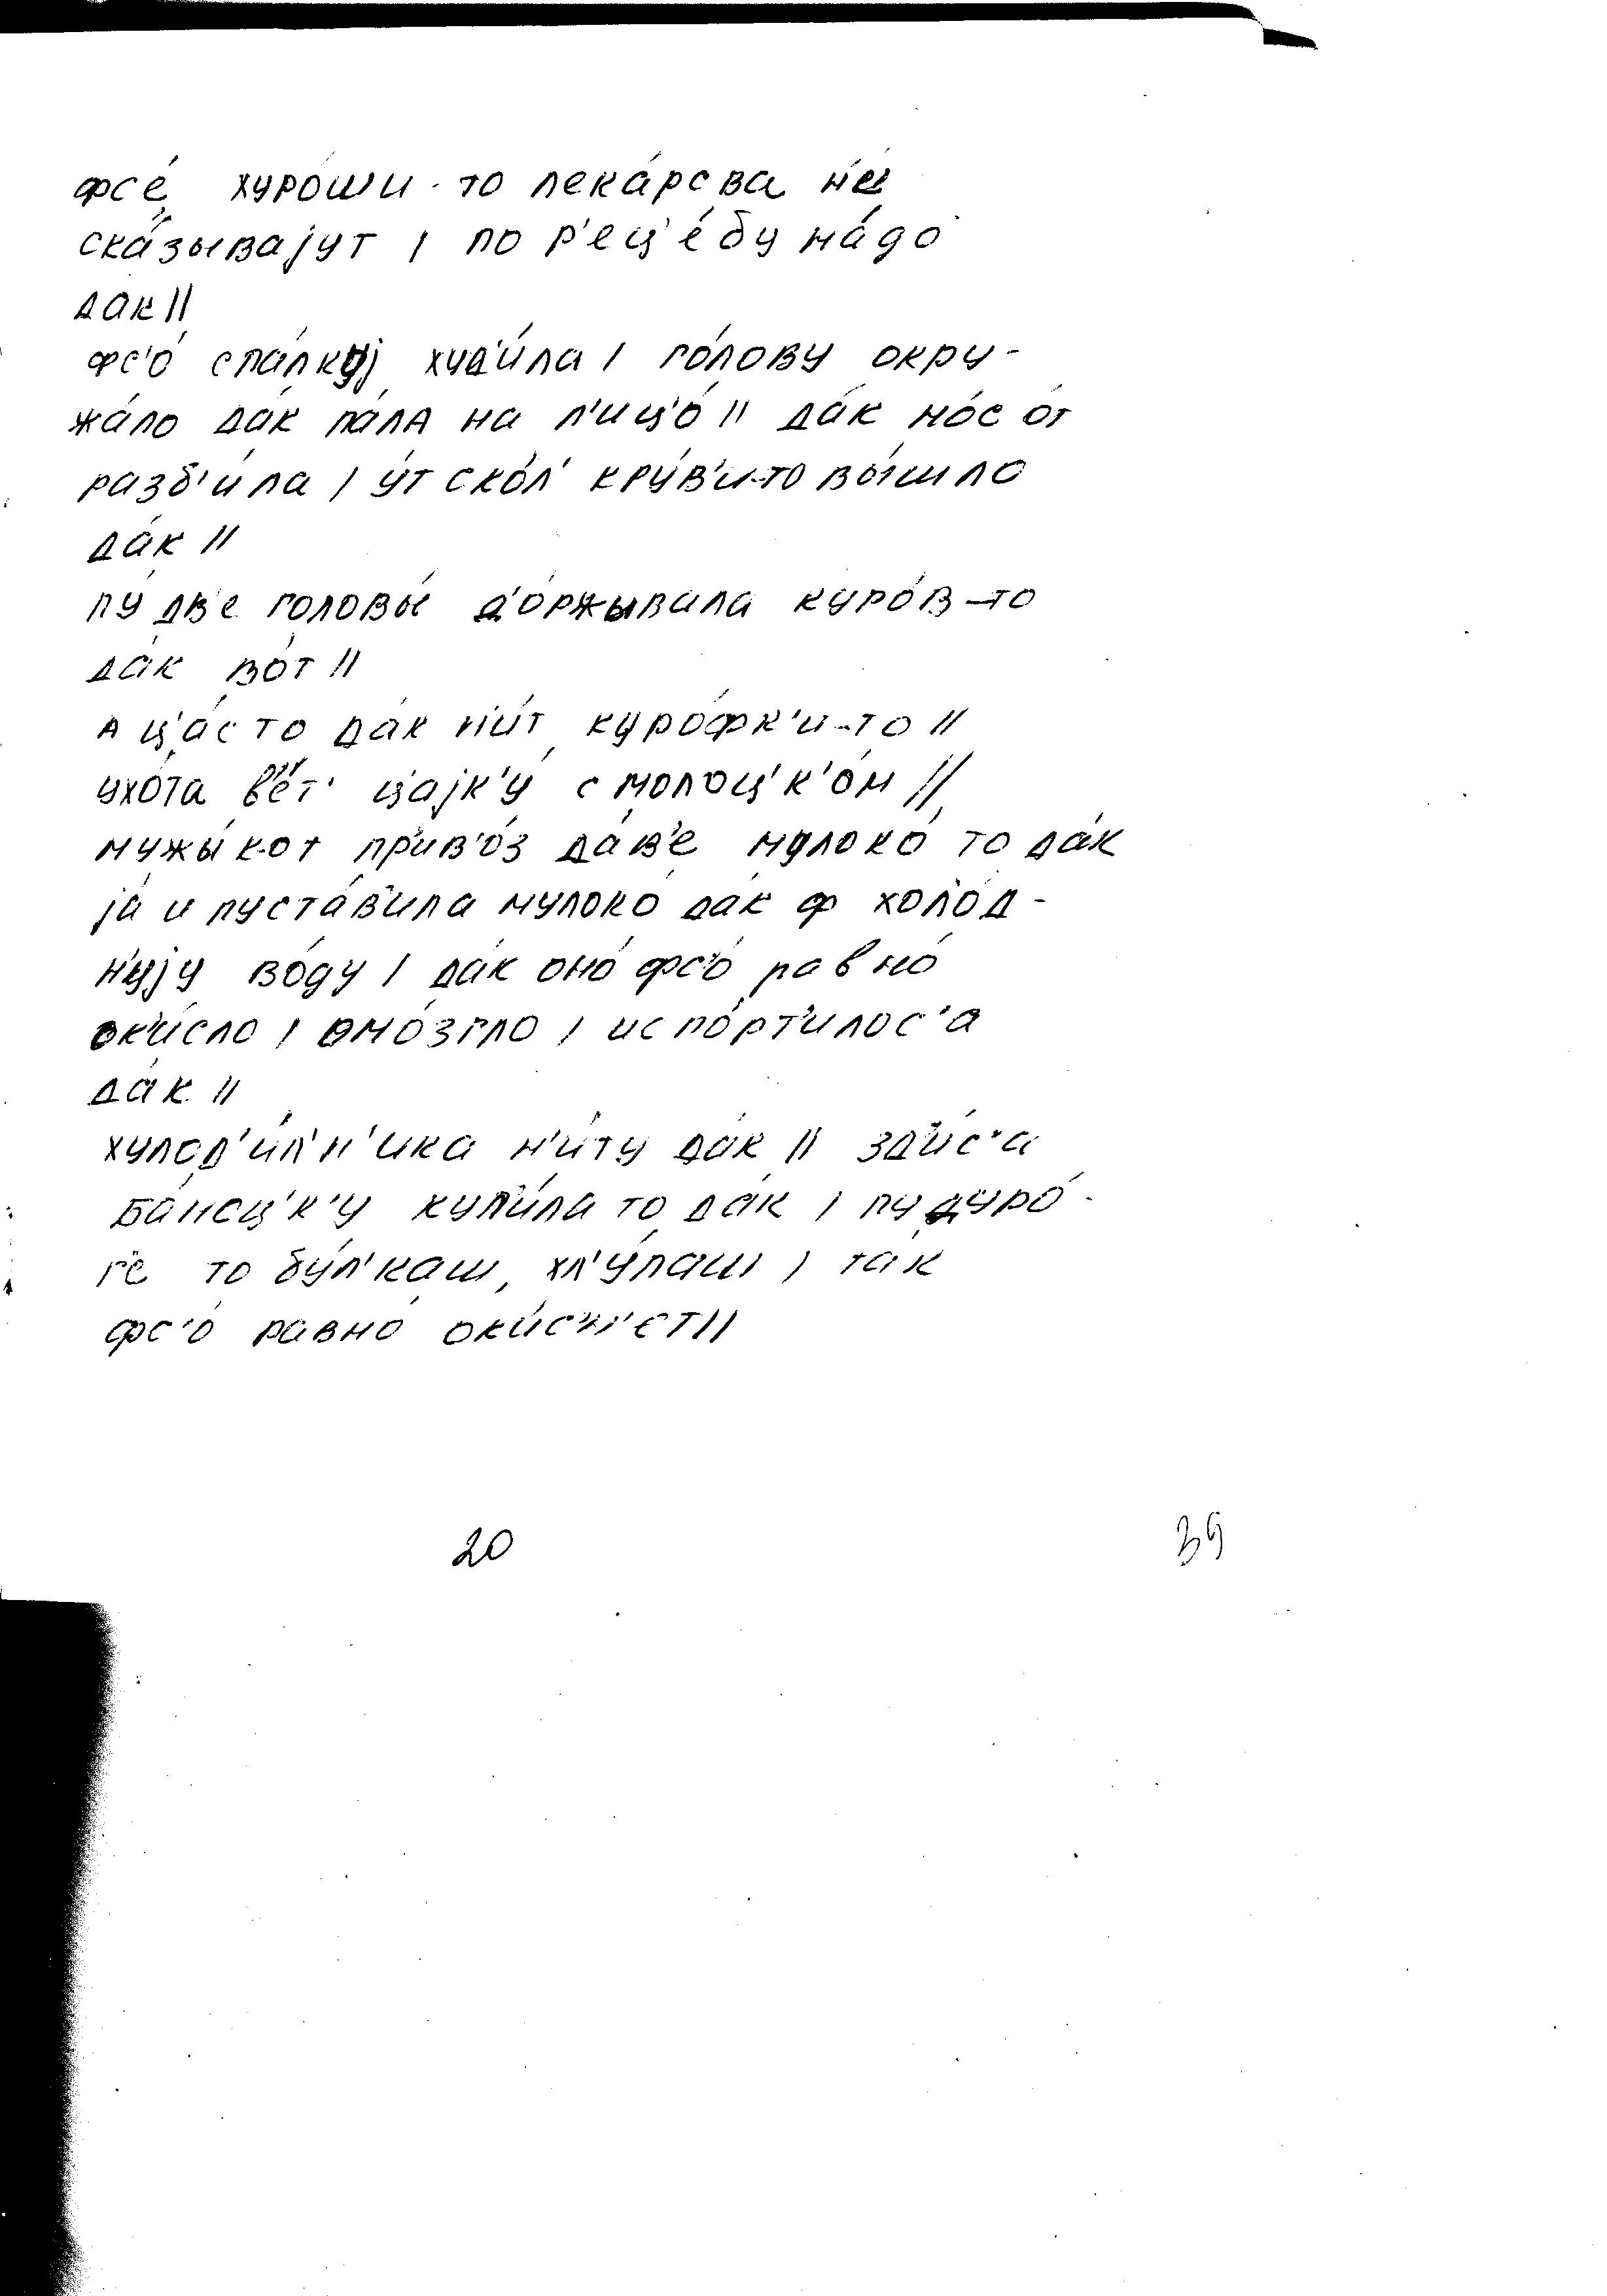 фс'е́ хуро́ши-то лека́рсва н'е
ска́зывајут | по р'ец'е́бу на́до
дак ||
фс'о́ с па́лкуј худ'и́ла | го́лову окру-
жа́ло да́к па́ла на л'ицо́ || да́к но́с от
разб'и́ла | у́т ско́л' кру́в'и-то вы́шло
да́к ||
пу дв'е головы́ д'о́ржывала куро́в-то
да́к во́т ||
а ц'а́сто да́к н'и́т куро́фк'и-то ||
ухо́та в'е́т' ц'ајк'у́ с молоц'к'о́м ||
мужы́к-от прив'о́з да́в'е мулоко́ то да́к
ја́ и пуста́в'ила мулоко́ да́к ф холо́д-
нују во́ду | да́к оно́ фс'о́ равно́
ок'и́сло | омо́згло | испо́рт'илос'а
да́к ||
хулод'и́л'н'ика н'и́ту да́к || зд'и́с'а
ба́ноц'к'у куп'и́ла то да́к | пу дуро́-
г'е то бу́л'каш, хл'у́паш | так
фс'о́ равно́ оки́с'н'ет ||
20
39